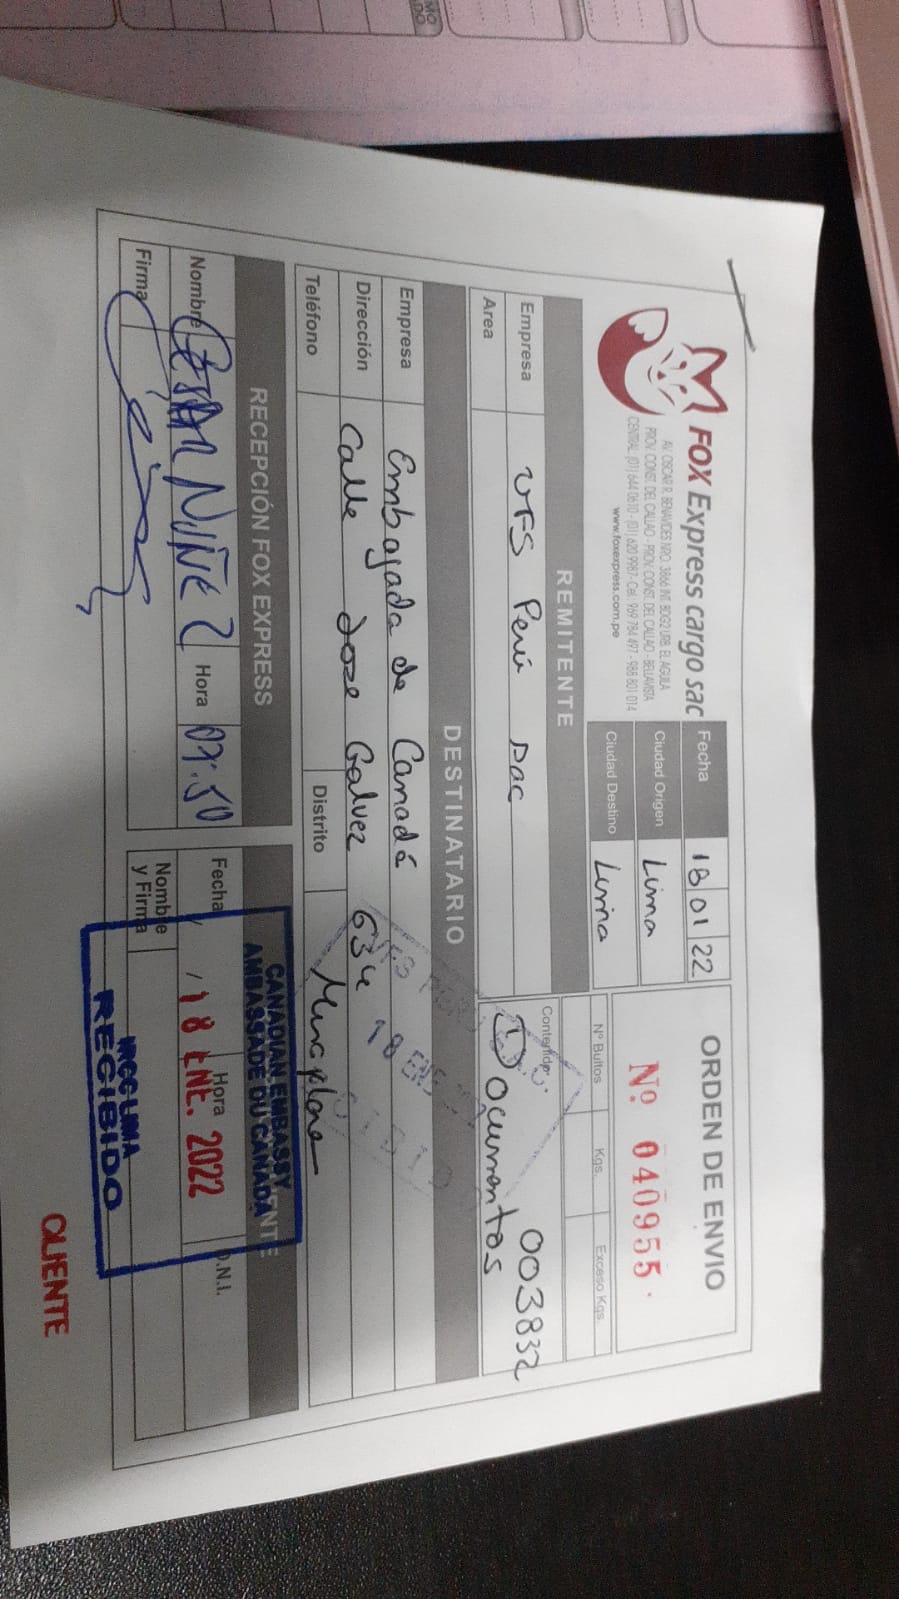 FOX Express cargo sac
AV. OSCAR R. BENAVIDES NRO. 3866 INT. BDG2 URB. EL AGUILA
PROV. CONST. DEL CALLAO - PROV. CONST. DEL CALLAO - BELLAVISTA
CENTRAL (01) 644 0610 - (01) 620 9987 - Cel. 969 784 497 - 988 801 014
www.foxexpress.com.pe
Fecha 18 01 22
Ciudad Origen Lima
Ciudad Destino Lima
ORDEN DE ENVIO
Nº 040955
REMITENTE
Nº Bultos Kgs. Exceso Kgs.
Empresa VFS Perú SAC
Area
Contenido: 003832
Documentos
DESTINATARIO
Empresa Embajada de Canadá
Dirección Calle Jose Galvez 634
Teléfono Distrito Miraflores
VFS
18 ENE
RECEPCIÓN FOX EXPRESS
Nombre NUÑEZ Hora 07:50
Firma
Fecha Hora D.N.I.
Nombre
y Firma
CANADIAN EMBASSY
AMBASSADE DU CANADA
18 ENE. 2022
IRCC LIMA
RECIBIDO
CLIENTE